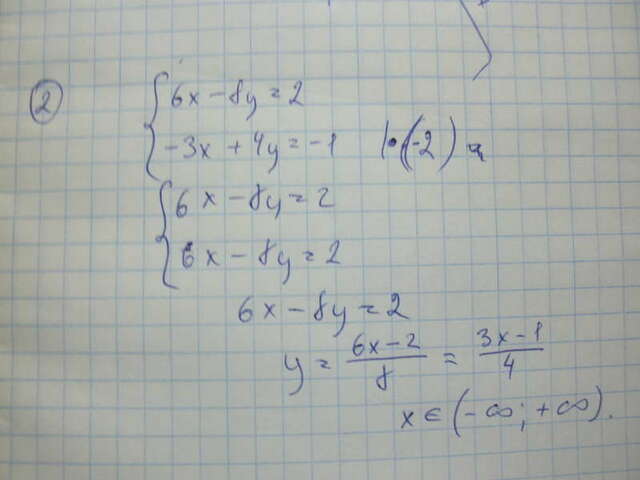 2
6x - 8y = 2
-3x + 4y = -1 | · (-2)
6x - 8y = 2
6x - 8y = 2
6x - 8y = 2
y = \frac{6x-2}{8} = \frac{3x-1}{4}
x ∈ (-∞; +∞).